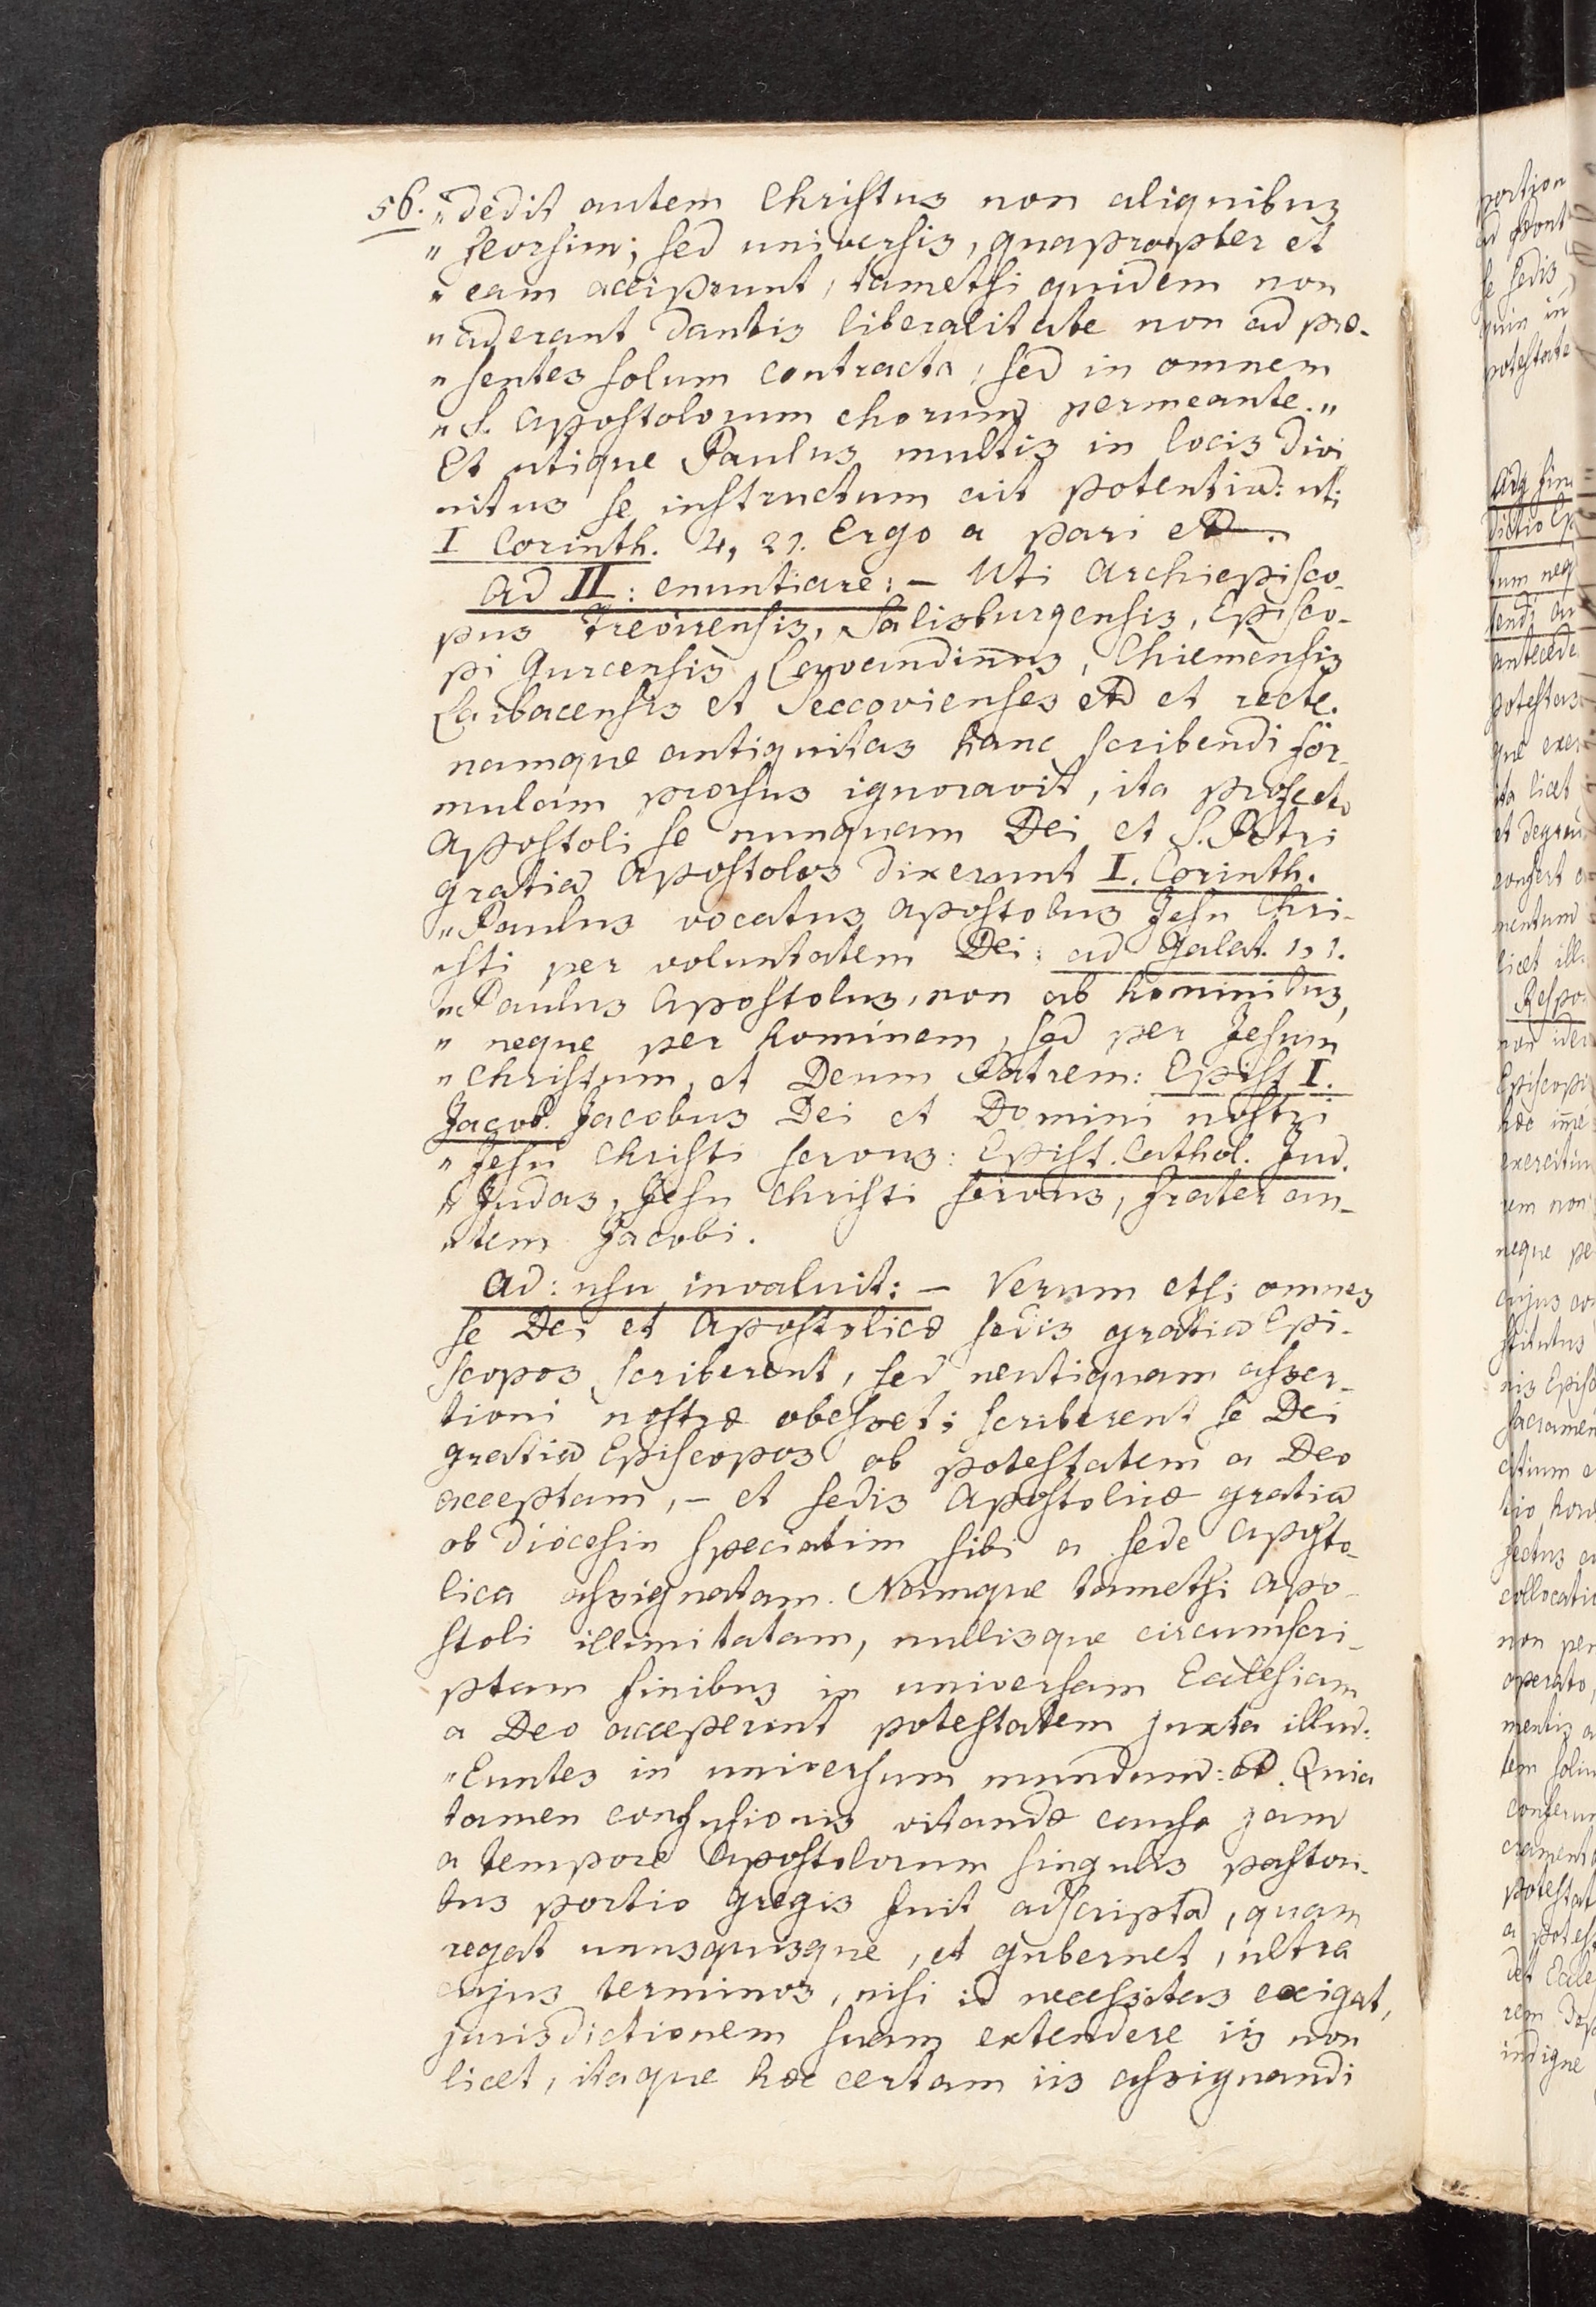 56. „dedit autem Christus non aliquibus
„ seorsim; sed universis, quapropter et
„ eam acceperunt, tametsi quidem non
„ aderant dantis liberalitate non ad præ-
„ sentes solum contracta, sed in omnem
„ S. Apostolorum chorum permeante.„
Et utique Paulus multis in locis divi
nitus se instructum ait potentia: uti
I Corinth. 4, 21. Ergo a pari etc.
Ad II: enuntiare: – Uti Archiepisco-
pus Trevirensis, Salisburgensis, Episco-
pi Gurcensis, Lavandinus, Chiemensis
Laibacensis et Seccovienses etc et recte.
namque antiquitas hanc scribendi for-
mulam prorsus ignoravit, ita profecto
Apostoli se nunquam Dei et S. Petri
gratia Apostolos dixerunt I. Corinth.
„Paulus vocatus Apostolus Jesu Chri-
„sti per voluntatem Dei: ad Galat. 1, 1.
„Paulus Apostolus, non ab hominibus,
„ neque per hominem, sed per Jesum
„ Christum, et Deum Patrem: Epist I.
Jacob. Jacobus Dei et Domini nostri
„ Jesu Christi servus: Epist. Cathol. Jud.
„ Judas, Jesu Christi servus, frater au-
„tem Jacobi.
Ad: usu invaluit: – Verum etsi omnes
se Dei et Apostolicæ sedis gratia Epi-
scopos scriberent, sed neutiquam asser-
tioni nostræ obesset; scriberent se Dei
gratia Episcopos ob potestatem a Deo
acceptam, – et sedis Apostolicæ gratia
ob diöcesin speciatim sibi a sede Aposto-
lica assignatam. Namque tametsi Apo-
stoli illimitatam, nullisque circumscri-
ptam finibus in universam Ecclesiam
a Deo acceperint potestatem juxta illud:
„Euntes in universum mundum: etc. Quia
tamen confusionis vitandæ causa jam
a tempore Apostolorum singulis pastori-
bus portio gregis fuit adscripta, quam
regat unusquisque, et gubernet, ultra
cujus terminos, nisi id necessitas exigat,
jurisdictionem suam extendere iis non
licet, itaque hæc certam iis assignandi